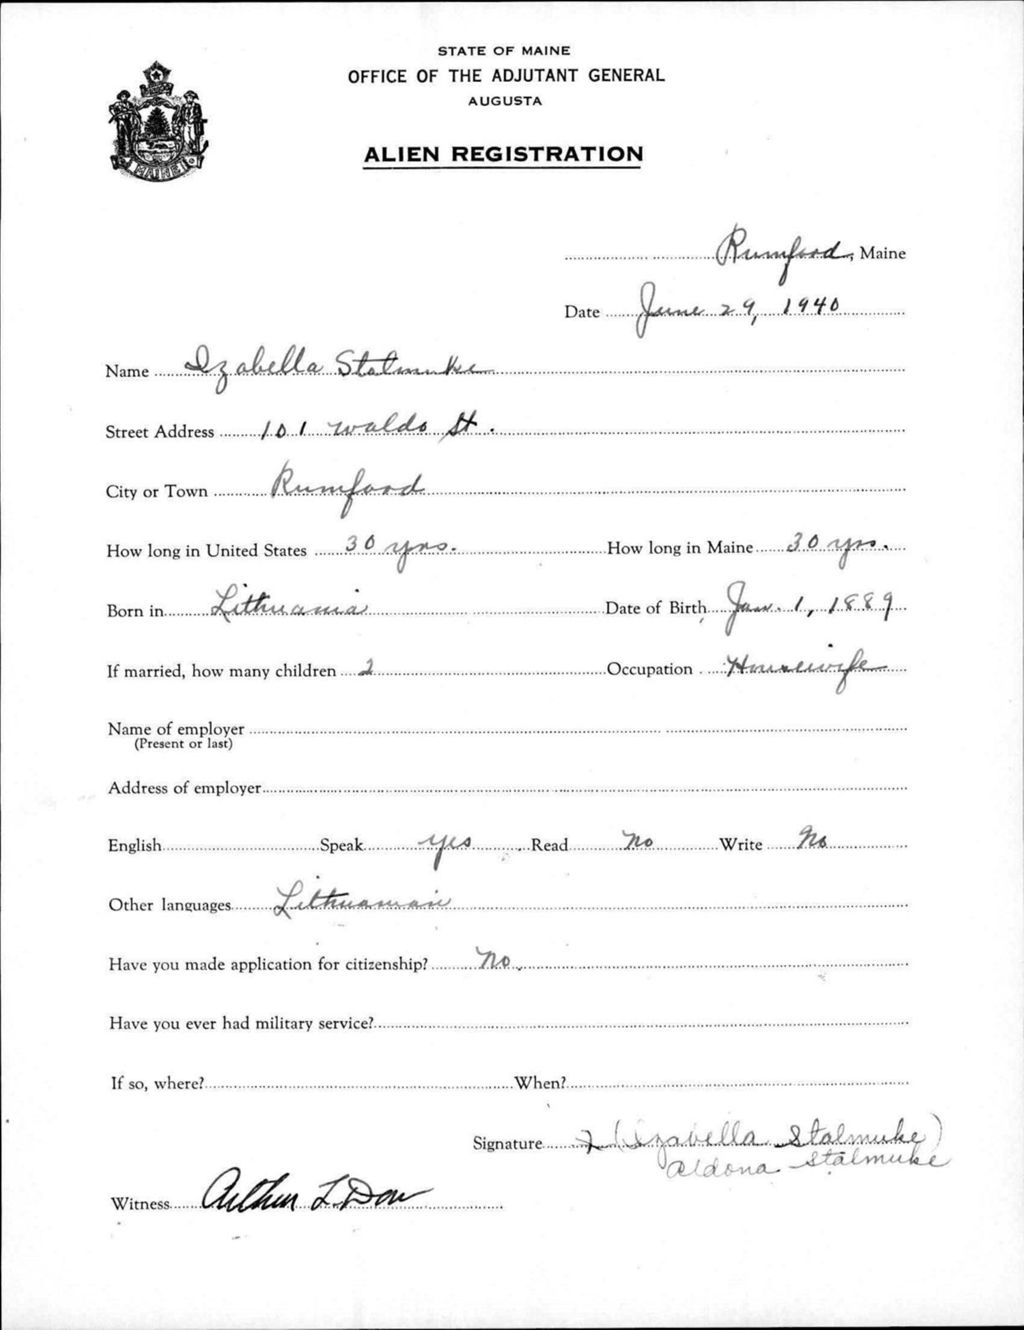 STATE OF MAINE
OFFICE OF THE ADJUTANT GENERAL
AUGUSTA
ALIEN REGISTRATION
MAINE
Rumford, Maine
Date June 29, 1940
Name Izabella Stalmuke
Street Address 101 Waldo St.
City or Town Rumford
How long in United States 30 yrs. How long in Maine 30 yrs.
Born in Lithuania Date of Birth Jan. 1, 1889
If married, how many children 2 Occupation Housewife
Name of employer
(Present or last)
Address of employer
English Speak yes Read No Write No
Other languages Lithuanian
Have you made application for citizenship? No.
Have you ever had military service?
If so, where? When?
Signature (Izabella Stalmuke)
Aldona Stalmuke
Witness Arthur L. Dow